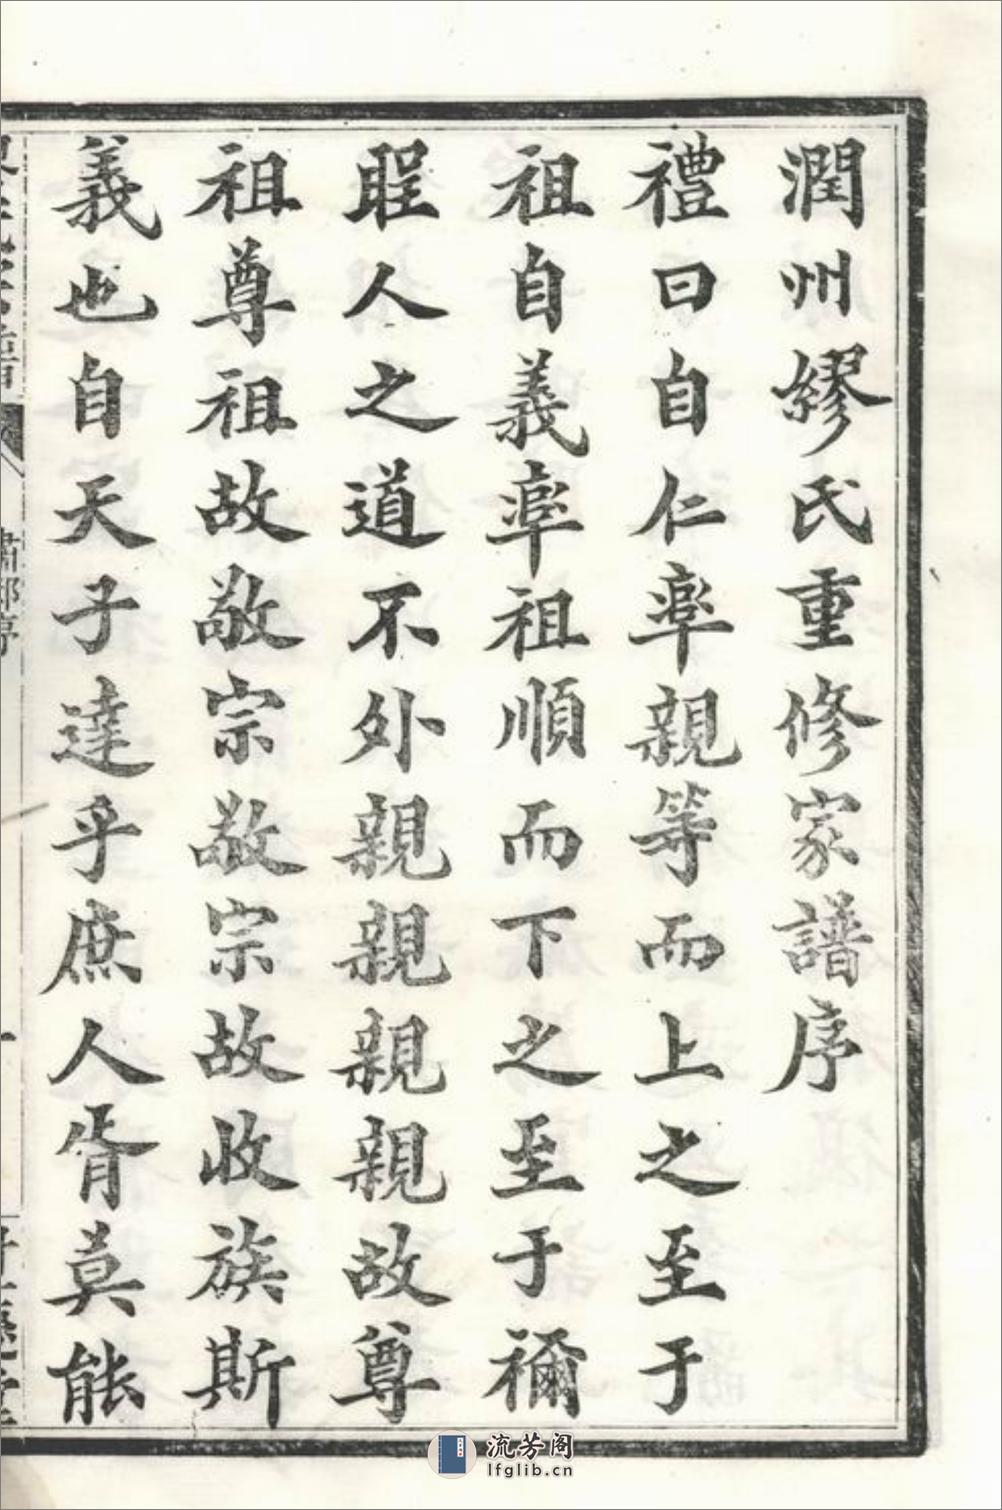 潤州繆氏重修家譜序
禮曰自仁率親等而上之至于
祖自義率祖順而下之至于禰
是人之道不外親親親親故尊
祖尊祖故敬宗敬宗故收族斯
義也自天子達乎庶人胥莫能
流芳阁
lfglib.cn